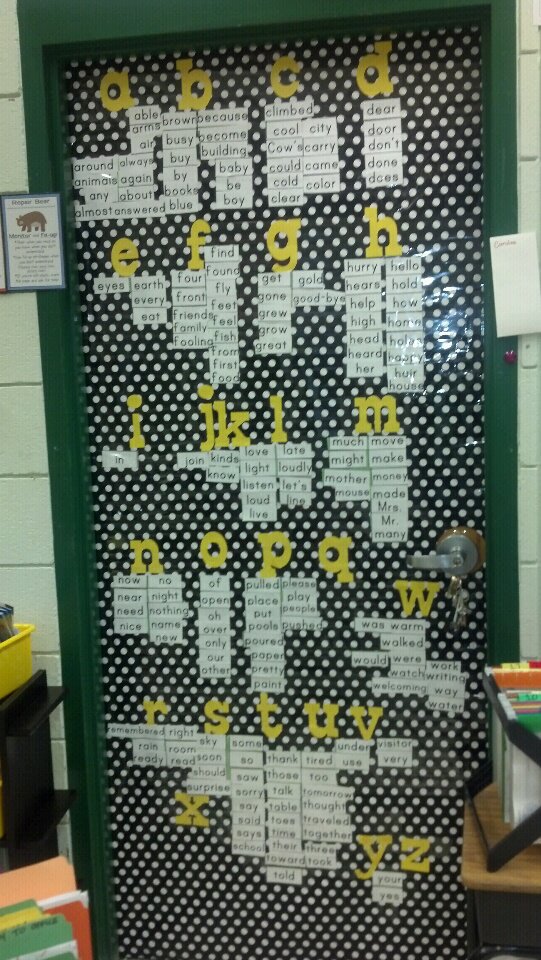 a b c d
able
arms
air
around always
animals again
any about
almost answered
brown because
busy become
buy building
by baby
books be
blue boy
climbed
cool city
Cow's carry
could came
cold color
clear
dear
door
don't
done
Repair Bear
Monitor and fix-up
e f g h
eyes earth
every
eat
find
four found
front fly
friends feet
family feel
fooling fish
from
first
food
get gold
gone good-bye
grew
grow
great
hurry hello
hears hold
help how
high home
head
heard happy
her hair
house
Caroline
i j k l m
in
join kinds
know
love late
light loudly
listen let's
loud line
live
much move
might make
mother money
mouse made
Mrs.
Mr.
many
n o p q
now no
near night
need nothing
nice name
new
of
open
oh
over
only
our
other
pulled please
place play
put people
pools pushed
poured
paper
pretty
paint
w
was warm
walked
would were work
watch writing
welcoming way
water
r s t u v
remembered right
rain room
ready read
sky some
soon so
should saw
surprise sorry
say
said
says
school
thank tired
those too
talk tomorrow
table thought
toes traveled
time together
their three
toward took
told
under
use
visitor
very
x
y z
your
yes